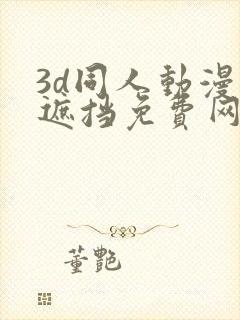 3d同人動漫
遮挡免費网
董艷